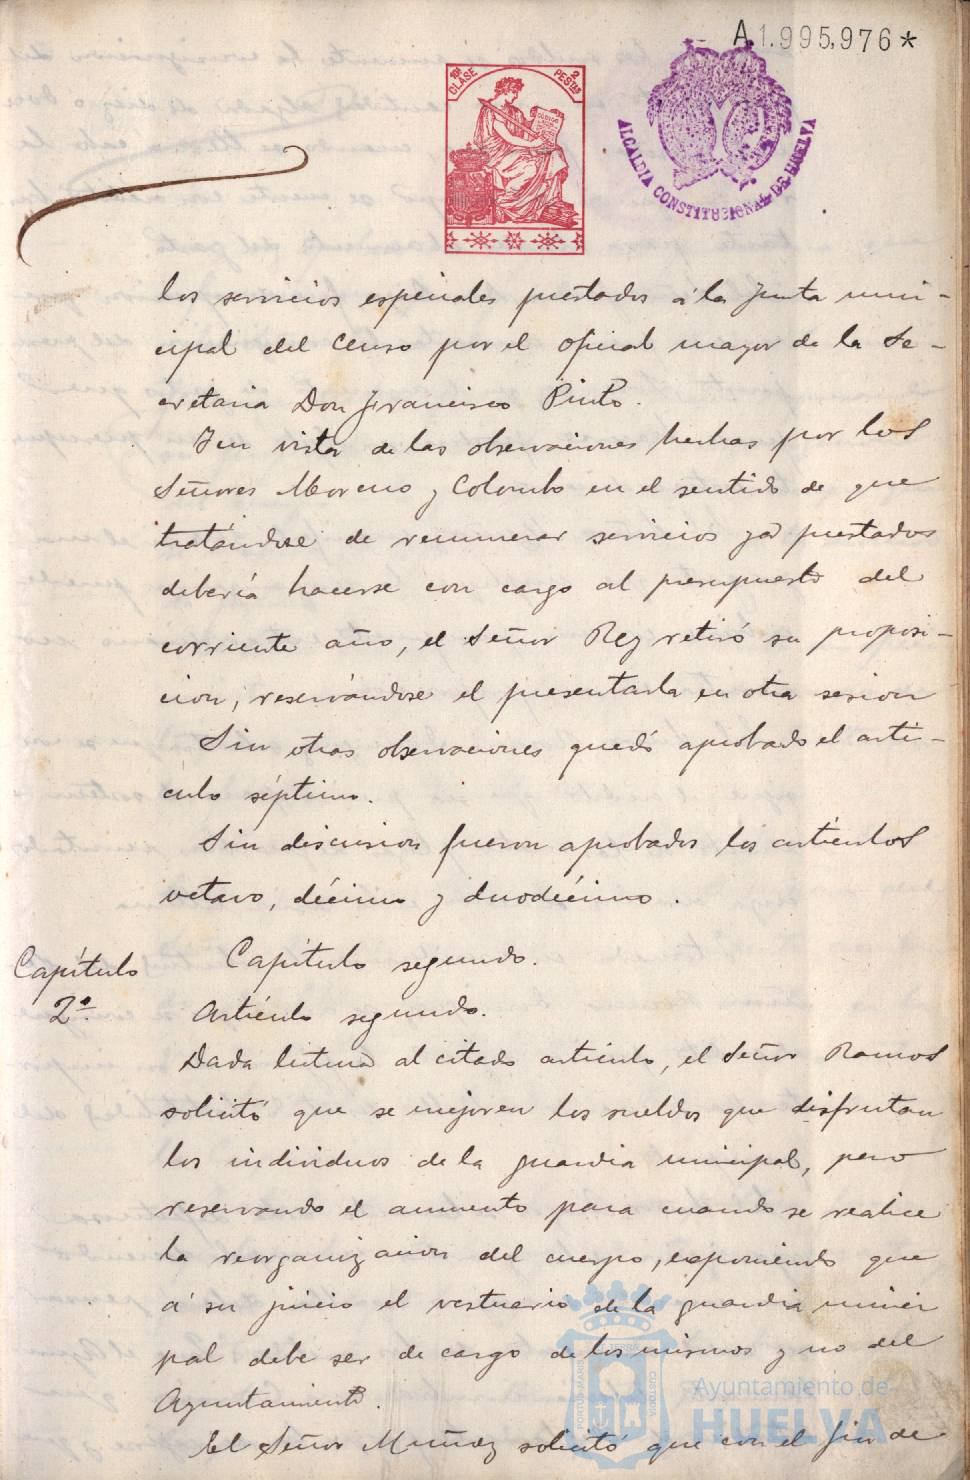 A1.995,976*
10ª CLASE
2 PESTAS
ALCALDIA CONSTITUCIONAL DE HUELVA
los servicios especiales prestados á la Junta muni-
cipal del Censo por el oficial mayor de la Se-
cretaria Don Francisco Pinto.
En vista de las observaciones hechas por los
Señores Moreno y Colombo en el sentido de que
tratándose de remunerar servicios ya prestados
debería hacerse con cargo al presupuesto del
corriente año, el Señor Rey retiró su proposi-
cion, reservándose el presentarla en otra sesion
Sin otras observaciones quedó aprobado el artí-
culo séptimo.
Sin discusion fueron aprobados los artículos
octavo, décimo y duodécimo.
Capítulo
2º
Capítulo segundo.
Artículo segundo.
Dada lectura al citado artículo, el Señor Ramos
solicitó que se mejoren los sueldos que disfrutan
los individuos de la guardia municipal, pero
reservando el aumento para cuando se realice
la reorganizacion del cuerpo, exponiendo que
á su juicio el vestuario de la guardia munici
pal debe ser de cargo de los mismos y no del
Ayuntamiento.
El Señor Muñoz solicitó que con el fin de
Ayuntamiento de
HUELVA